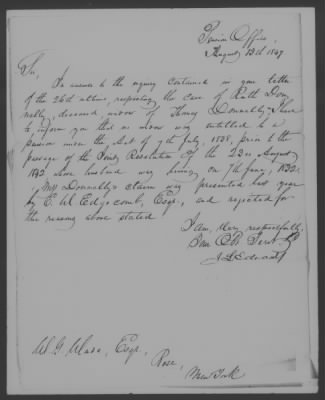 Pension Office,
August 13th 1847
Sir,
In answer to the inquiry contained in your letter
of the 26th ultimo, respecting the case of Ruth Don-
nelly, deceased, widow of Thomas Donnelly I have
to inform you that no widow was entitled to a
pension under the Act of 7th July, 1838, prior to the
passage of the Joint Resolution of the 23rd August
1842 whose husband was living on 7th
Mrs Donnelly's claim was presented last year
by E. W. Edgcomb, Esqr., and rejected for
the reasons above stated
I am, Very respectfully,
Your Obt. Servt
J L Edwards
W. G.
Esqr,
Rose,
New York